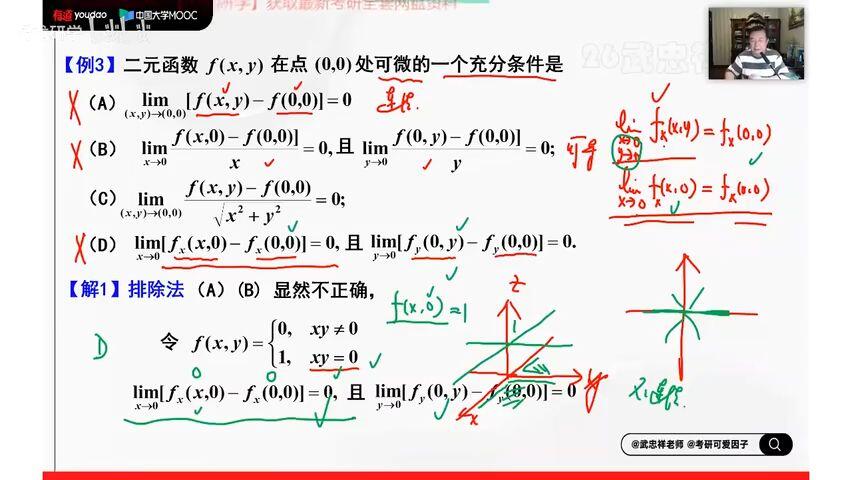 有道 youdao | 中国大学MOOC
研学】获取最新考研全套网盘资料
26武忠祥
【例3】二元函数 f(x,y) 在点 (0,0) 处可微的一个充分条件是
X (A) lim_{(x,y)→(0,0)} [f(x,y)−f(0,0)]=0 连续.
X (B) lim_{x→0} (f(x,0)−f(0,0)]/x = 0, 且 lim_{y→0} (f(0,y)−f(0,0)]/y = 0; 可导
(C) lim_{(x,y)→(0,0)} (f(x,y)−f(0,0))/√(x²+y²) = 0;
X (D) lim_{x→0}[f_x(x,0)−f_x(0,0)]=0, 且 lim_{y→0}[f_y(0,y)−f_y(0,0)]=0.
lim_{x→0, y→0} f_x(x,y) = f_x(0,0)
lim_{x→0} f_x(x,0) = f_x(0,0)
【解1】排除法 (A)(B) 显然不正确,
f(x,0)=1
D 令 f(x,y)={0, xy≠0
1, xy=0
0 0
lim_{x→0}[f_x(x,0)−f_x(0,0)]=0, 且 lim_{y→0}[f_y(0,y)−f_y(0,0)]=0
z
1
x
y
不连续.
@武忠祥老师 @考研可爱因子